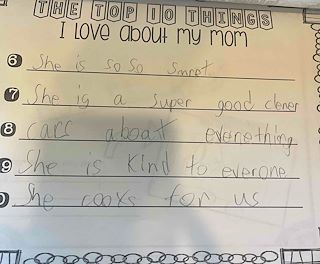 THE TOP 10 THINGS
I LOVE about my mom
6 She is so so smret
7 She is a super good clener
8 cars aboat evenething
9 She is Kind to everone
0 She cooks for us